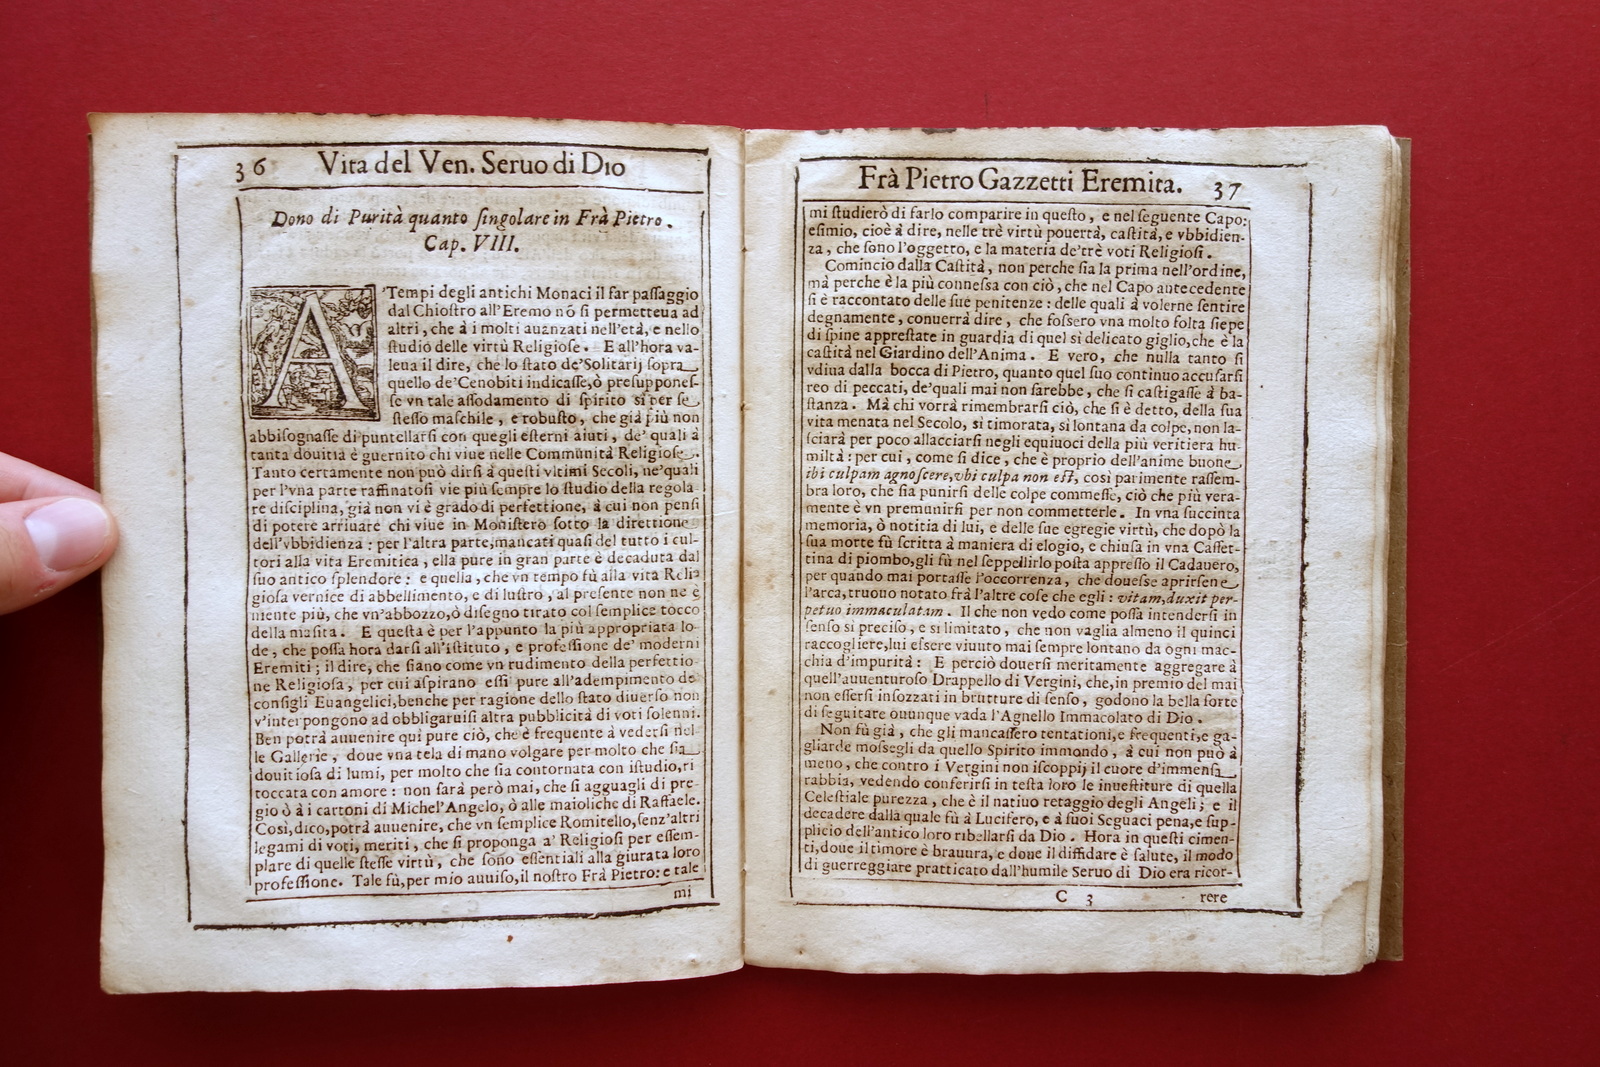 36 Vita del Ven. Seruo di Dio
Dono di Purità quanto singolare in Frà Pietro.
Cap. VIII.
A'Tempi degli antichi Monaci il far passaggio
dal Chiostro all'Eremo nõ si permetteua ad
altri, che à i molti auanzati nell'età, e nello
studio delle virtù Religiose. E all'hora va-
leua il dire, che lo stato de'Solitarij sopra
quello de'Cenobiti indicasse, ò presuppones-
se vn tale assodamento di spirito sì per se
stesso maschile, e robusto, che già più non
abbisognasse di puntellarsi con quegli esterni aiuti, de' quali à
tanta douitia è guernito chi viue nelle Communità Religiose.
Tanto certamente non può dirsi à questi vltimi Secoli, ne'quali
per l'vna parte raffinatosi vie più sempre lo studio della regola
re disciplina, già non vi è grado di perfettione, à cui non pensi
di potere arriuare chi viue in Monistero sotto la direttione
dell'vbbidienza: per l'altra parte, mancati quasi del tutto i cul-
tori alla vita Eremitica, ella pure in gran parte è decaduta dal
suo antico splendore: e quella, che vn tempo fù alla vita Reli-
giosa vernice di abbellimento, e di lustro, al presente non ne è
niente più, che vn'abbozzo, ò disegno tirato col semplice tocco
della matita. E questa è per l'appunto la più appropriata lo-
de, che possa hora darsi all'istituto, e professione de' moderni
Eremiti; il dire, che siano come vn rudimento della perfettio-
ne Religiosa, per cui aspirano essi pure all'adempimento de
consigli Euangelici, benche per ragione dello stato diuerso non
v'interpongono ad obbligaruisi altra pubblicità di voti solenni.
Ben potrà auuenire qui pure ciò, che è frequente à vedersi nel
le Gallerie, doue vna tela di mano volgare per molto che sia
douitiosa di lumi, per molto che sia contornata con istudio, ri
toccata con amore: non sarà però mai, che si agguagli di pre-
gio ò à i cartoni di Michel'Angelo, ò alle maioliche di Raffaele.
Così, dico, potrà auuenire, che vn semplice Romitello, senz'altri
legami di voti, meriti, che si proponga a' Religiosi per essem-
plare di quelle stesse virtù, che sono essentiali alla giurata loro
professione. Tale fù, per mio auuiso, il nostro Frà Pietro: e tale
mi
Frà Pietro Gazzetti Eremita. 37
mi studierò di farlo comparire in questo, e nel seguente Capo:
esimio, cioè à dire, nelle trè virtù pouertà, castità, e vbbidien-
za, che sono l'oggetto, e la materia de'trè voti Religiosi.
Comincio dalla Castità, non perche sia la prima nell'ordine,
mà perche è la più connessa con ciò, che nel Capo antecedente
si è raccontato delle sue penitenze: delle quali à volerne sentire
degnamente, conuerrà dire, che fossero vna molto folta siepe
di spine apprestate in guardia di quel sì delicato giglio, che è la
castità nel Giardino dell'Anima. E vero, che nulla tanto si
vdiua dalla bocca di Pietro, quanto quel suo continuo accusarsi
reo di peccati, de'quali mai non sarebbe, che si castigasse à ba-
stanza. Mà chi vorrà rimembrarsi ciò, che si è detto, della sua
vita menata nel Secolo, sì timorata, sì lontana da colpe, non la-
sciarà per poco allacciarsi negli equiuoci della più veritiera hu-
miltà: per cui, come si dice, che è proprio dell'anime buone
ibi culpam agnoscere, vbi culpa non est, così parimente rassem-
bra loro, che sia punirsi delle colpe commesse, ciò che più vera-
mente è vn premunirsi per non commetterle. In vna succinta
memoria, ò notitia di lui, e delle sue egregie virtù, che dopò la
sua morte fù scritta à maniera di elogio, e chiusa in vna Casset-
tina di piombo, gli fù nel seppellirlo posta appresso il Cadauero,
per quando mai portasse l'occorrenza, che douesse aprirsene
l'arca, truouo notato frà l'altre cose che egli: vitam, duxit per-
petuo immaculatam. Il che non vedo come possa intendersi in
senso sì preciso, e sì limitato, che non vaglia almeno il quinci
raccogliere, lui essere viuuto mai sempre lontano da ogni mac-
chia d'impurità: E perciò douersi meritamente aggregare à
quell'auuenturoso Drappello di Vergini, che, in premio del mai
non essersi insozzati in brutture di senso, godono la bella sorte
di seguitare ouunque vada l'Agnello Immacolato di Dio.
Non fù già, che gli mancassero tentationi, e frequenti, e ga-
gliarde mossegli da quello Spirito immondo, à cui non può à
meno, che contro i Vergini non iscoppij il cuore d'immensa
rabbia, vedendo conferirsi in testa loro le inuestiture di quella
Celestiale purezza, che è il natiuo retaggio degli Angeli; e il
decadere dalla quale fù à Lucifero, e à suoi Seguaci pena, e sup-
plicio dell'antico loro ribellarsi da Dio. Hora in questi cimen-
ti, doue il timore è brauura, e doue il diffidare è salute, il modo
di guerreggiare pratticato dall'humile Seruo di Dio era ricor-
C 3 rere